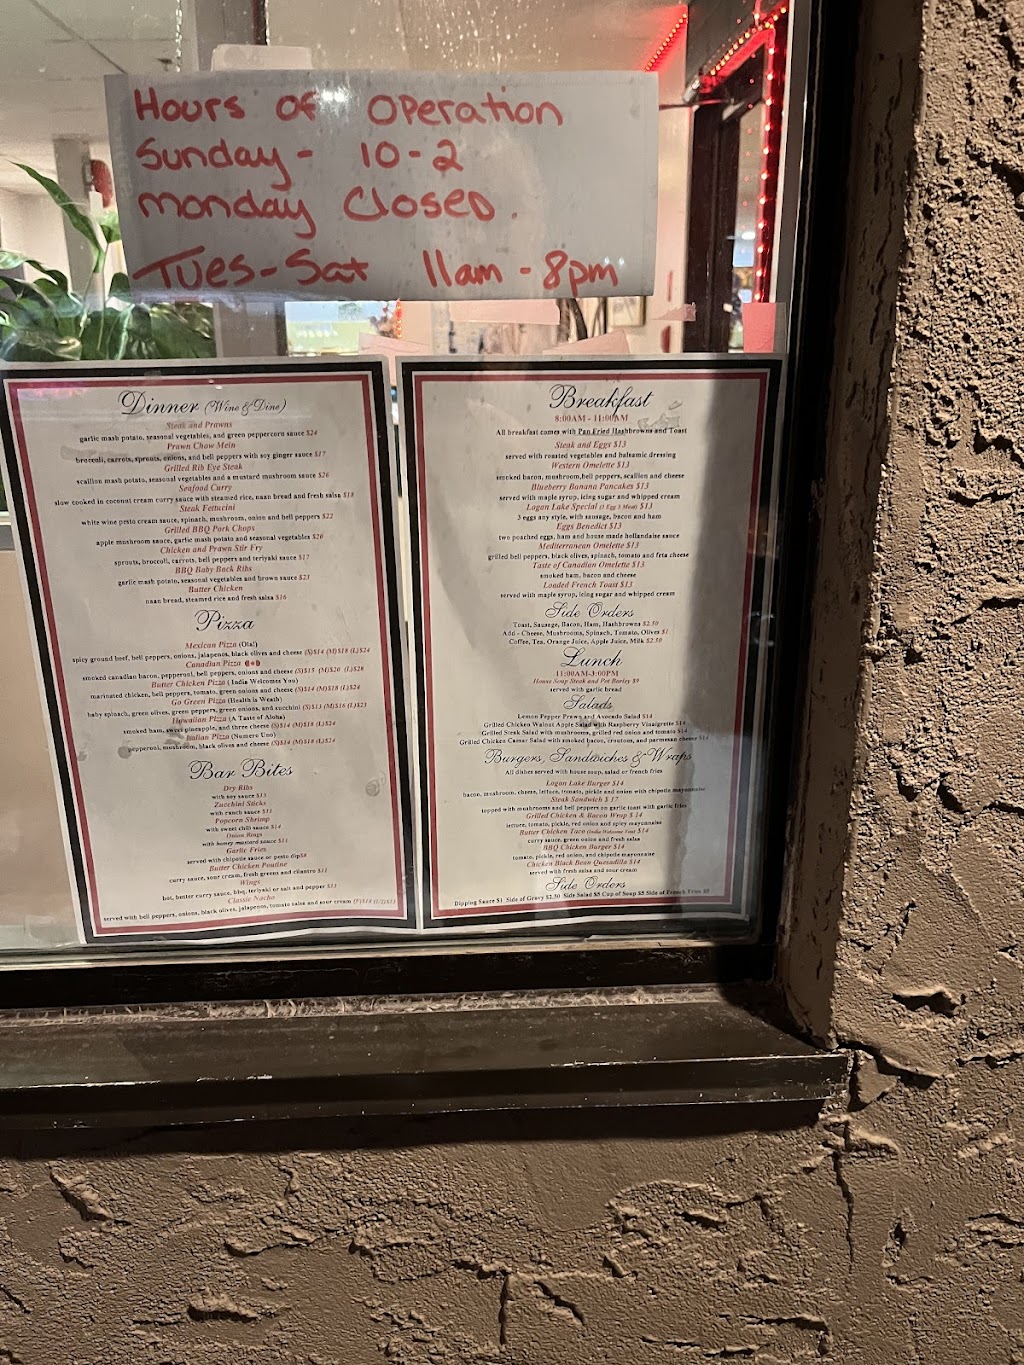 Hours of Operation
Sunday - 10-2
Monday Closed.
Tues-Sat 11am - 8pm
Dinner (Wine & Dine)
Steak and Prawns
garlic mash potato, seasonal vegetables, and green peppercorn sauce $24
Prawn Chow Mein
broccoli, carrots, sprouts, onions, and bell peppers with soy ginger sauce $17
Grilled Rib Eye Steak
scallion mash potato, seasonal vegetables and a mustard mushroom sauce $26
Seafood Curry
slow cooked in coconut cream curry sauce with steamed rice, naan bread and fresh salsa $18
Steak Fettucini
white wine pesto cream sauce, spinach, mushroom, onion and bell peppers $22
Grilled BBQ Pork Chops
apple mushroom sauce, garlic mash potato and seasonal vegetables $20
Chicken and Prawn Stir Fry
sprouts, broccoli, carrots, bell peppers and teriyaki sauce $17
BBQ Baby Back Ribs
garlic mash potato, seasonal vegetables and brown sauce $23
Butter Chicken
naan bread, steamed rice and fresh salsa $16
Pizza
Mexican Pizza (Ola!)
spicy ground beef, bell peppers, onions, jalapenos, black olives and cheese (S)$14 (M)$18 (L)$24
Canadian Pizza
smoked canadian bacon, pepperoni, bell peppers, onions and cheese (S)$15 (M)$20 (L)$28
Butter Chicken Pizza (India Welcomes You)
marinated chicken, bell peppers, tomato, green onions and cheese (S)$14 (M)$18 (L)$24
Go Green Pizza (Health is Weath)
baby spinach, green olives, green peppers, green onions, and zucchini (S)$13 (M)$16 (L)$23
Hawaiian Pizza (A Taste of Aloha)
smoked ham, sweet pineapple, and three cheese (S)$14 (M)$18 (L)$24
Italian Pizza (Numeru Uno)
pepperoni, mushroom, black olives and cheese (S)$14 (M)$18 (L)$24
Bar Bites
Dry Ribs
with soy sauce $13
Zucchini Sticks
with ranch sauce $11
Popcorn Shrimp
with sweet chili sauce $14
Onion Rings
with honey mustard sauce $11
Garlic Fries
served with chipotle sauce or pesto dip$8
Butter Chicken Poutine
curry sauce, sour cream, fresh greens and cilantro $11
Wings
hot, butter curry sauce, bbq, teriyaki or salt and pepper $13
Classic Nacho
served with bell peppers, onions, black olives, jalapenos, tomato salsa and sour cream
Breakfast
8:00AM - 11:00AM
All breakfast comes with Pan Fried Hashbrowns and Toast
Steak and Eggs $13
served with roasted vegetables and balsamic dressing
Western Omelette $13
smoked bacon, mushroom,bell peppers, scallion and cheese
Blueberry Banana Pancakes $13
served with maple syrup, icing sugar and whipped cream
Logan Lake Special (1 Egg 1 Meat) $13
3 eggs any style, with sausage, bacon and ham
Eggs Benedict $13
two poached eggs, ham and house made hollandaise sauce
Mediterranean Omelette $13
grilled bell peppers, black olives, spinach, tomato and feta cheese
Taste of Canadian Omelette $13
smoked ham, bacon and cheese
Loaded French Toast $13
served with maple syrup, icing sugar and whipped cream
Side Orders
Toast, Sausage, Bacon, Ham, Hashbrowns $2.50
Add - Cheese, Mushrooms, Spinach, Tomato, Olives $1
Coffee, Tea, Orange Juice, Apple Juice, Milk $2.50
Lunch
11:00AM-3:00PM
House Soup Steak and Pot Barley $9
served with garlic bread
Salads
Lemon Pepper Prawn and Avocado Salad $14
Grilled Chicken Walnut Apple Salad with Raspberry Vinaigrette $14
Grilled Steak Salad with mushrooms, grilled red onion and tomato $14
Grilled Chicken Caesar Salad with smoked bacon, croutons, and parmesan cheese $14
Burgers, Sandwiches & Wraps
All dishes served with house soup, salad or french fries
Logan Lake Burger $14
bacon, mushroom, cheese, lettuce, tomato, pickle and onion with chipotle mayonnaise
Steak Sandwich $ 17
topped with mushrooms and bell peppers on garlic toast with garlic fries
Grilled Chicken & Bacon Wrap $ 14
lettuce, tomato, pickle, red onion and spicy mayonnaise
Butter Chicken Taco (India Welcome You) $14
curry sauce, green onion and fresh salsa
BBQ Chicken Burger $14
tomato, pickle, red onion, and chipotle mayonnaise
Chicken Black Bean Quesadilla $14
served with fresh salsa and sour cream
Side Orders
Dipping Sauce $1 Side of Gravy $2.50 Side Salad $5 Cup of Soup $5 Side of French Fries $5